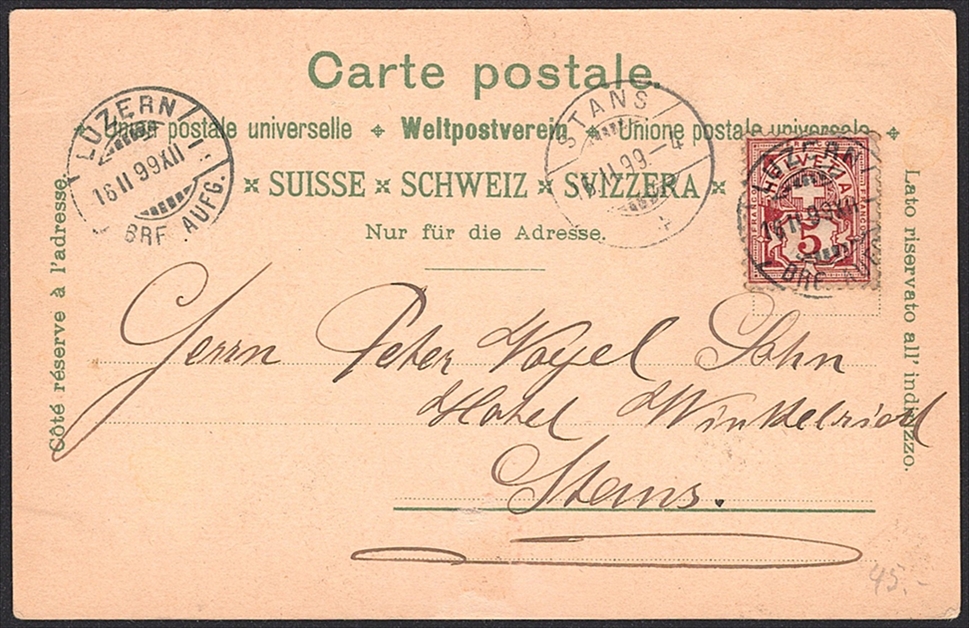 Carte postale.
Union postale universelle Weltpostverein Unione postale universale
SUISSE SCHWEIZ SVIZZERA
Nur für die Adresse.
Côté réservé à l'adresse.
Lato riservato all' indirizzo.
LUZERN
16 II 99 XII
BRF. AUFG.
STANS
16 II 99 - 4
HELVETIA
FRANCO
5
LUZERN
16 II 99 XII
BRF. AUFG.
Herrn Peter Vogel Sohn
Hotel Winkelried
Stans.
45.-